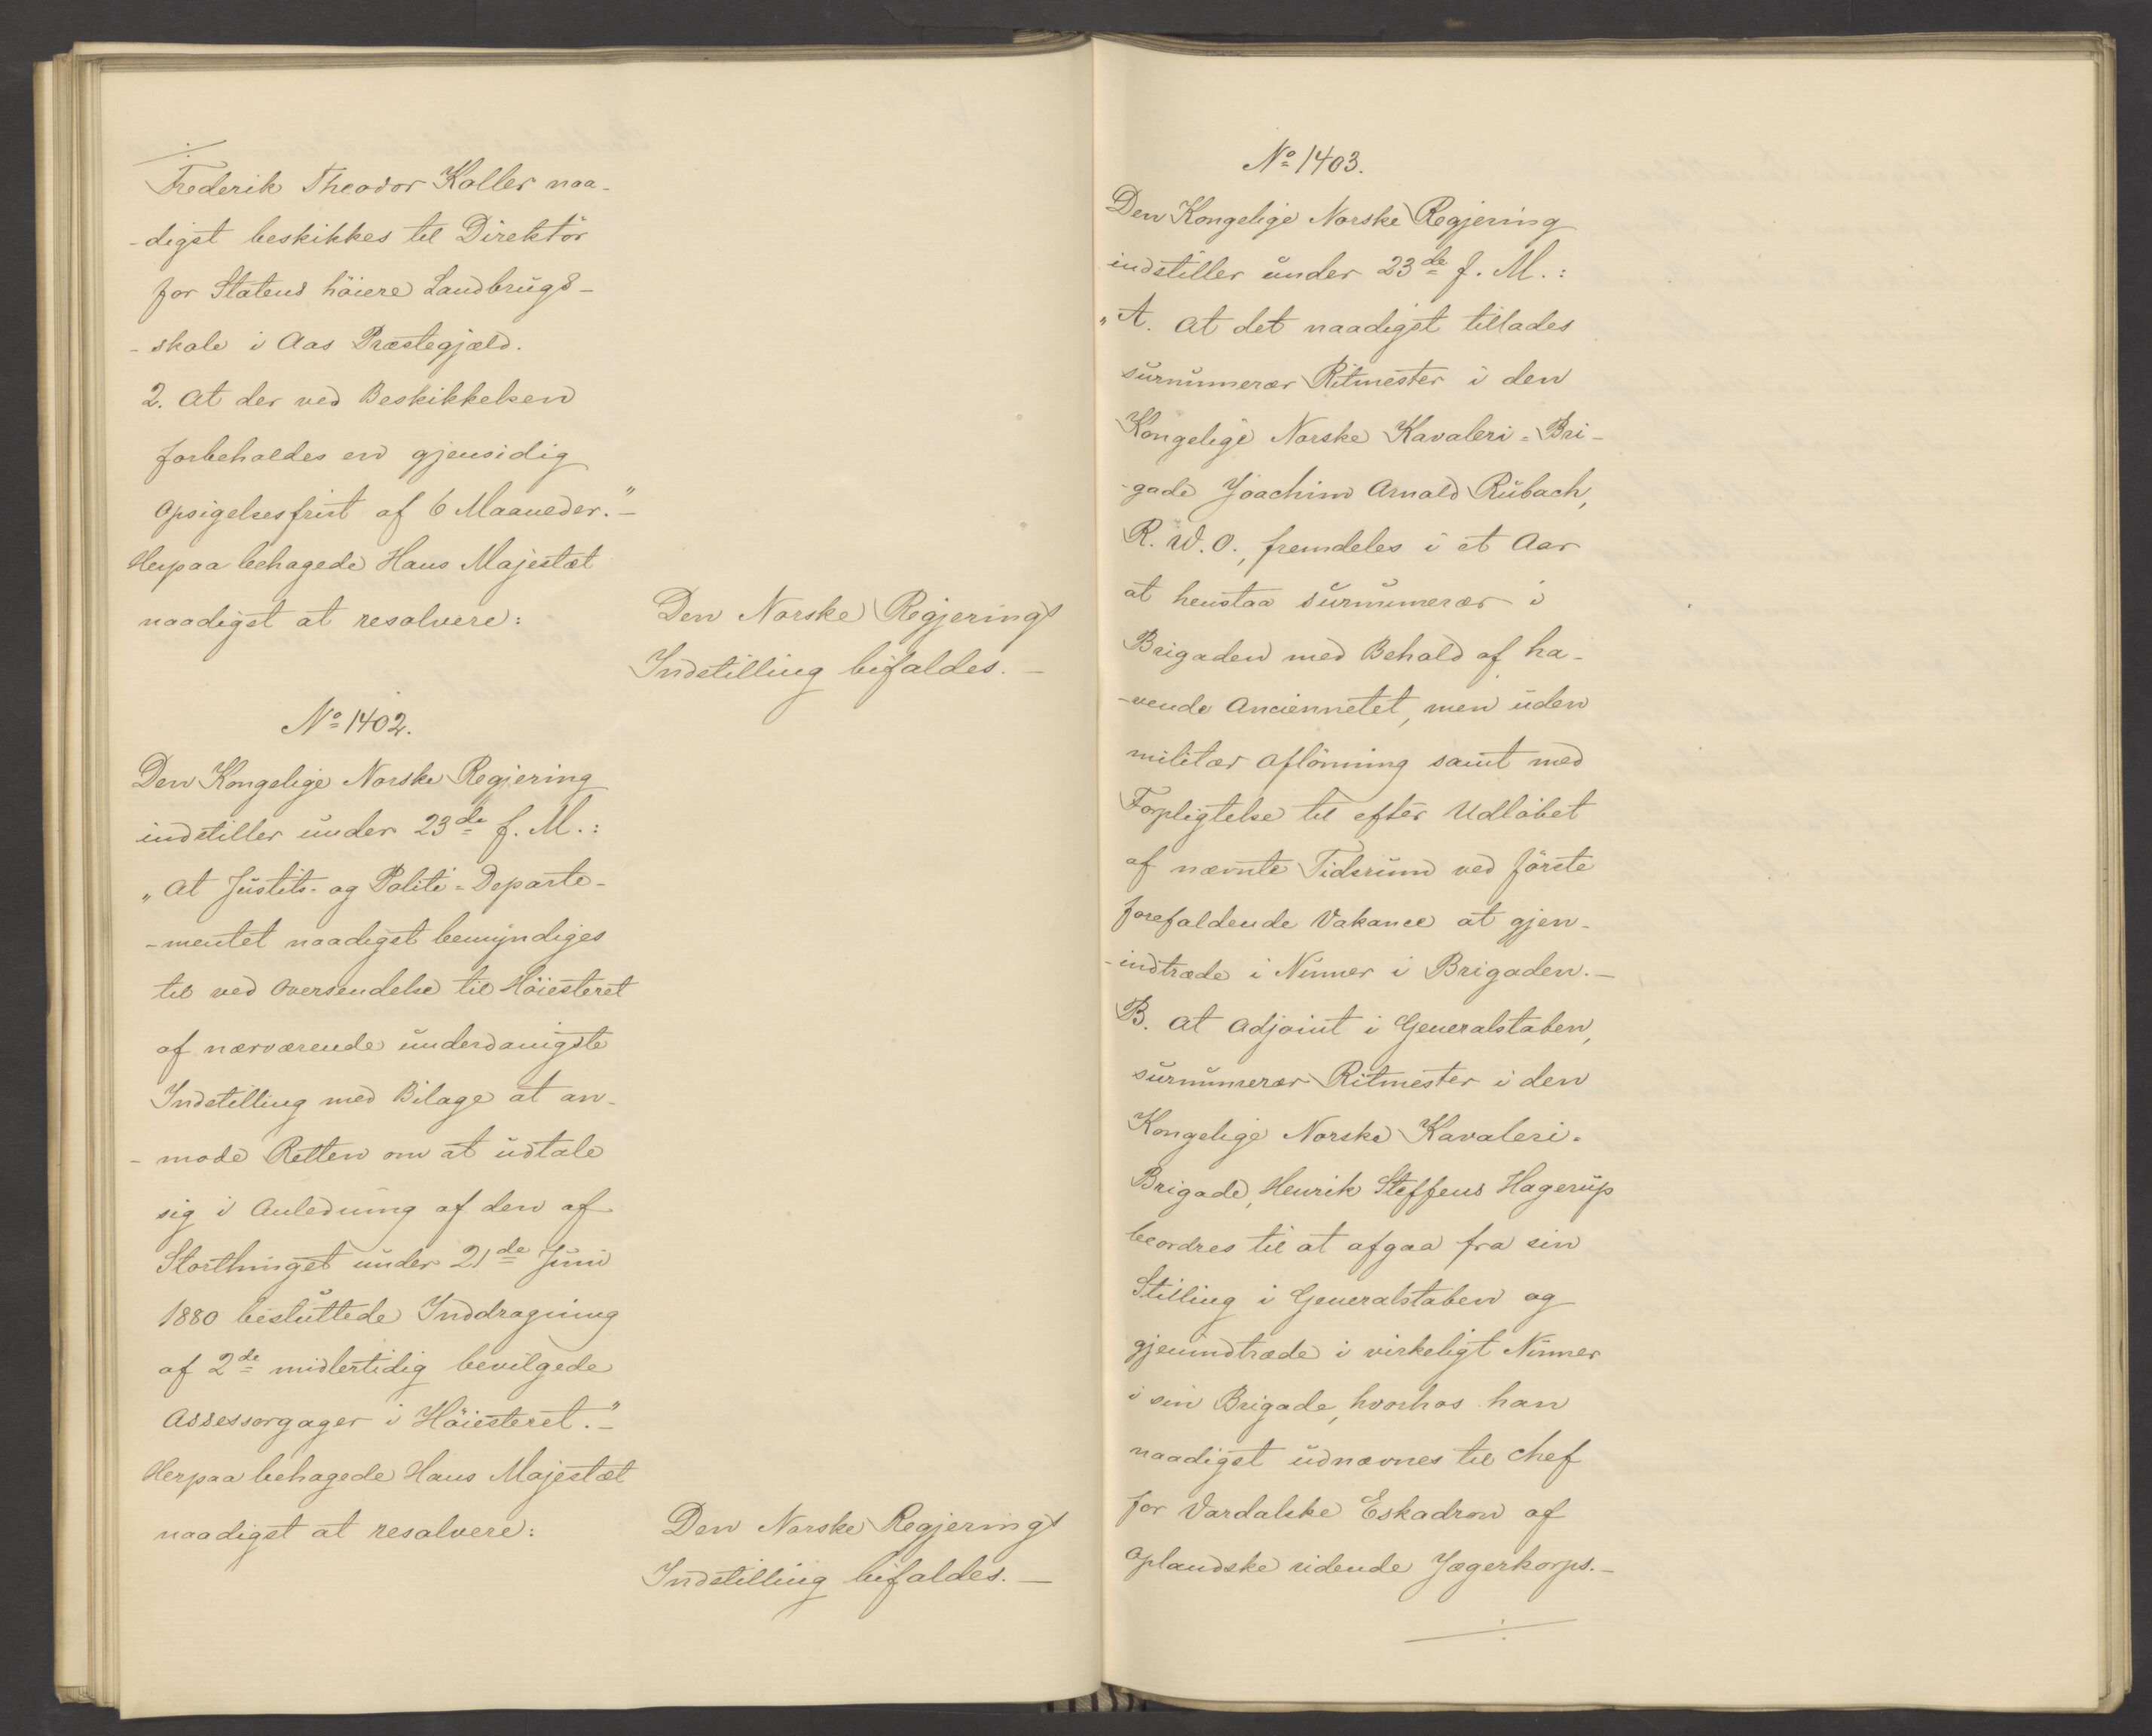 Frederik Theodor Koller naa-
-digst beskikkes til Direktör
for Statens höiere Landbrugs-
-skole i Aas Præstegjæld.
2. At der ved Beskikkelsen
forbeholdes en gjensidig
Opsigelsesfrist af 6 Maaneder."-
Herpaa behagede Hans Majestæt
naadigst at resolvere:
Den Norske Regjerings
Indstilling bifaldes. -
No 1402.
Den Kongelige Norske Regjering
indstiller under 23de f. M.:
"At Justits- og Politi-Departe-
-mentet naadigst bemyndiges
til ved Oversendelse til Höiesteret
af nærværende underdanigste
Indstilling med Bilage at an-
-mode Retten om at udtale
sig i Anledning af den af
Storthinget under 21de Juni
1880 besluttede Inddragning
af 2de midlertidig bevilgede
Assessorgager i Höiesteret."-
Herpaa behagede Hans Majestæt
naadigst at resolvere:
Den Norske Regjerings
Indstilling bifaldes. -
No 1403.
Den Kongelige Norske Regjering
indstiller under 23de f. M.:
"A. At det naadigst tillades
surnumerær Ritmester i den
Kongelige Norske Kavaleri-Bri-
-gade Joachim Arnold Rubach,
R. W. O., fremdeles i et Aar
at henstaa surnumerær i
Brigaden med Behold af ha-
-vende Anciennetet, men uden
militær Aflönning samt med
Forpligtelse til efter Udlöbet
af nævnte Tidsrum ved förste
forefaldende Vakance at gjen-
-indtræde i Numer i Brigaden. -
B. At Adjoint i Generalstaben,
surnumerær Ritmester i den
Kongelige Norske Kavaleri-
Brigade, Henrik Steffens Hagerup
beordres til at afgaa fra sin
Stilling i Generalstaben og
gjenindtræde i virkeligt Numer
i sin Brigade, hvorhos han
naadigst udnævnes til Chef
for Vardalske Eskadron af
Oplandske ridende Jægerkorps. -